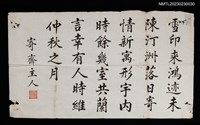 雪印來鴻迹未
陳汀洲落日寄
情新寓形宇内
時餘幾室共蘭
言幸有人時維
仲秋之月
寄齋主人